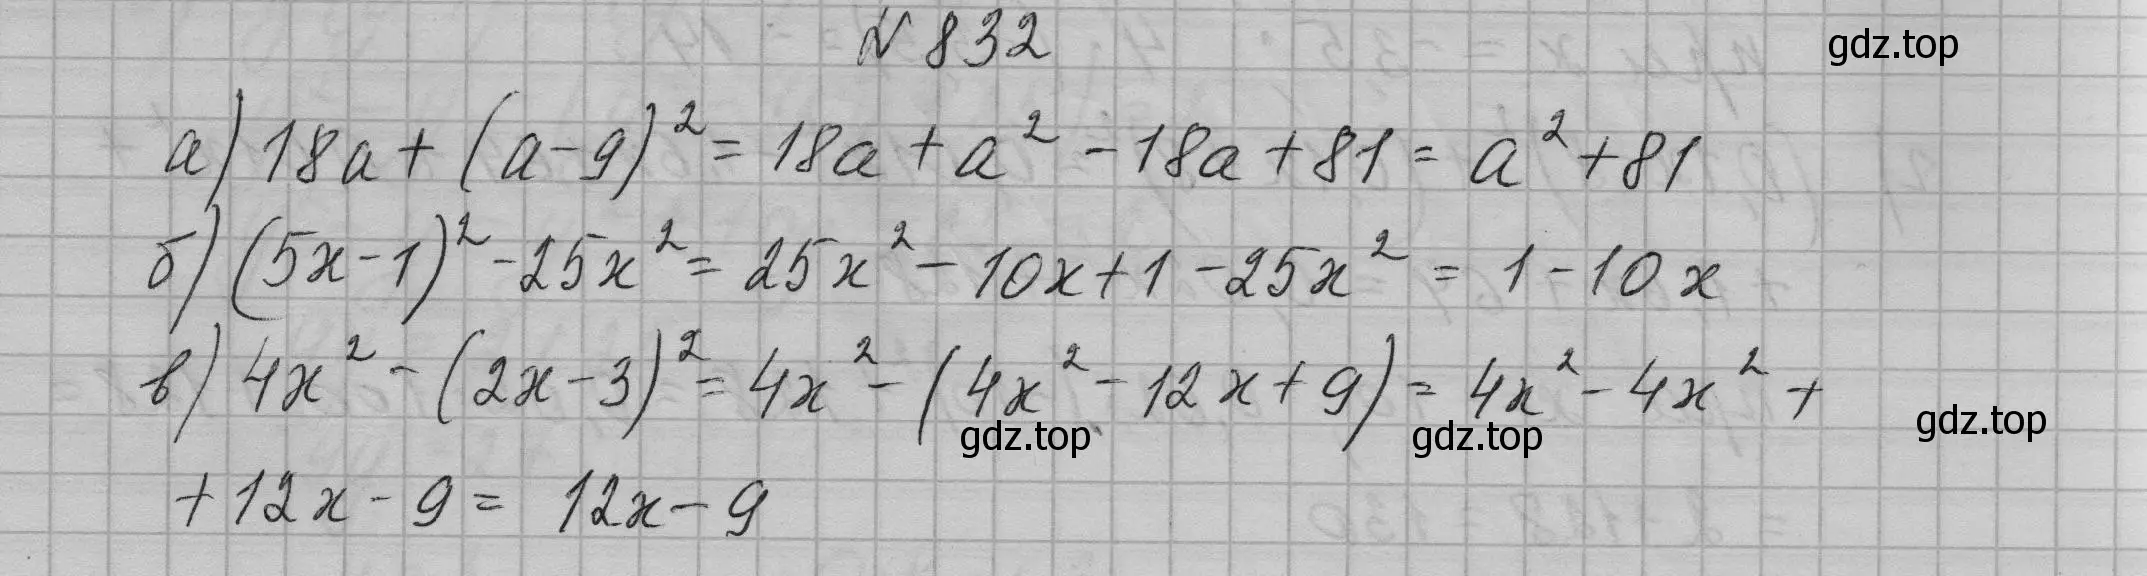 № 832
gdz.top
а) 18a + (a - 9)² = 18a + a² - 18a + 81 = a² + 81
б) (5x - 1)² - 25x² = 25x² - 10x + 1 - 25x² = 1 - 10x
в) 4x² - (2x - 3)² = 4x² - (4x² - 12x + 9) = 4x² - 4x² +
gdz.top gdz.top gdz.top
+ 12x - 9 = 12x - 9